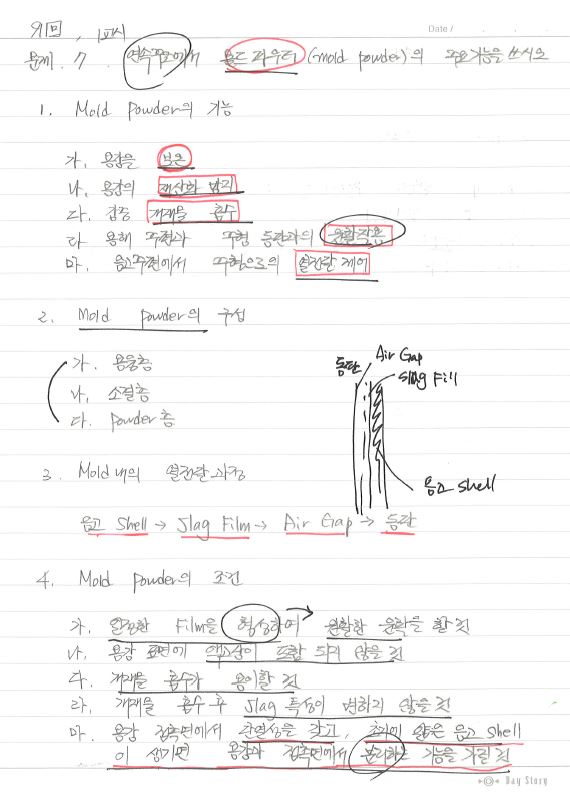 91회, 1교시
Date /
문제. 7. 연속주조에서 몰드 파우더(mold powder)의 주요기능을 쓰시오
1. Mold Powder의 기능
가. 용강을 보온
나. 용강의 재산화 방지
다. 각종 개재물 흡수
라 응고 주편과 주형 동판과의 윤활작용
마. 응고주편에서 주형으로의 열전달 제어
2. Mold powder의 구성
가. 용융층
나. 소결층
다. powder층
동판
Air Gap
slag Fill
응고 shell
3. Mold내의 열전달 과정
응고 Shell → Slag Film → Air Gap → 동판
4. Mold powder의 조건
가. 안정한 Film을 형성하여 원활한 윤활을 할 것
나. 용강 표면에 액상이 포함 되지 않을 것
다. 개재물 흡수가 용이할 것
라. 개재물 흡수 후 Slag 특성이 변하지 않을 것
마. 용강 접촉면에서 갖고, 초기에 얇은 응고 shell
이 생기면 용강과 접촉면에서 분리하는 기능을 가질 것
Day Story